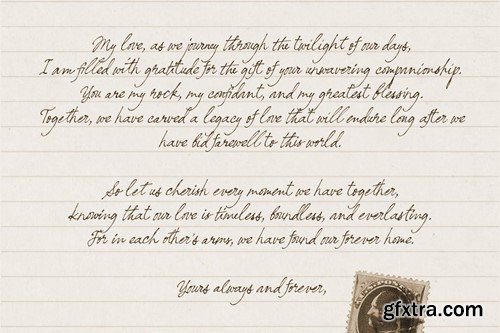 My love, as we journey through the twilight of our days,
I am filled with gratitude for the gift of your unwavering companionship.
You are my rock, my confidant, and my greatest blessing.
Together, we have carved a legacy of love that will endure long after we
have bid farewell to this world.
So let us cherish every moment we have together,
knowing that our love is timeless, boundless, and everlasting.
For in each other's arms, we have found our forever home.
Yours always and forever,
gfxtra.com